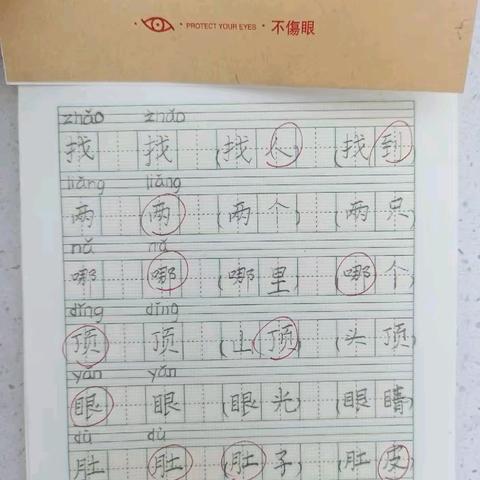 · PROTECT YOUR EYES · 不傷眼
zhǎo zhǎo
找 找 (找人) (找到)
liǎng liǎng
两 两 (两个) (两只)
nǎ nǎ
哪 哪 (哪里) (哪个)
dǐng dǐng
顶 顶 (山顶) (头顶)
yǎn yǎn
眼 眼 (眼光) (眼睛)
dù dù
肚 肚 (肚子) (肚皮)